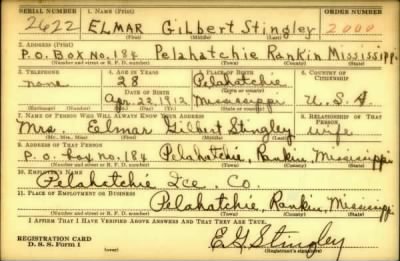 SERIAL NUMBER 1. NAME (Print) ORDER NUMBER
2622 ELMAR Gilbert Stingley 2000
(First) (Middle) (Last)
2. ADDRESS (Print)
P.O. Box No. 184 Pelahatchie Rankin Mississippi
(Number and street or R. F. D. number) (Town) (County) (State)
3. TELEPHONE 4. AGE IN YEARS 5. PLACE OF BIRTH 6. COUNTRY OF CITIZENSHIP
none 28 Pelahatchie
DATE OF BIRTH (Town or county)
Apr. 22, 1912 Mississippi U.S.A.
(Exchange) (Number) (Mo.) (Day) (Yr.) (State or country)
7. NAME OF PERSON WHO WILL ALWAYS KNOW YOUR ADDRESS 8. RELATIONSHIP OF THAT PERSON
Mrs. Elmar Gilbert Stingley wife
(Mr., Mrs., Miss) (First) (Middle) (Last)
9. ADDRESS OF THAT PERSON
P.O. Box No. 184 Pelahatchie, Rankin, Mississippi
(Number and street or R. F. D. number) (Town) (County) (State)
10. EMPLOYER'S NAME
Pelahatchie Ice. Co.
11. PLACE OF EMPLOYMENT OR BUSINESS
Pelahatchie, Rankin, Mississippi
(Number and street or R. F. D. number) (Town) (County) (State)
I AFFIRM THAT I HAVE VERIFIED ABOVE ANSWERS AND THAT THEY ARE TRUE.
REGISTRATION CARD
D. S. S. Form 1
E G Stingley
(Registrant's signature)